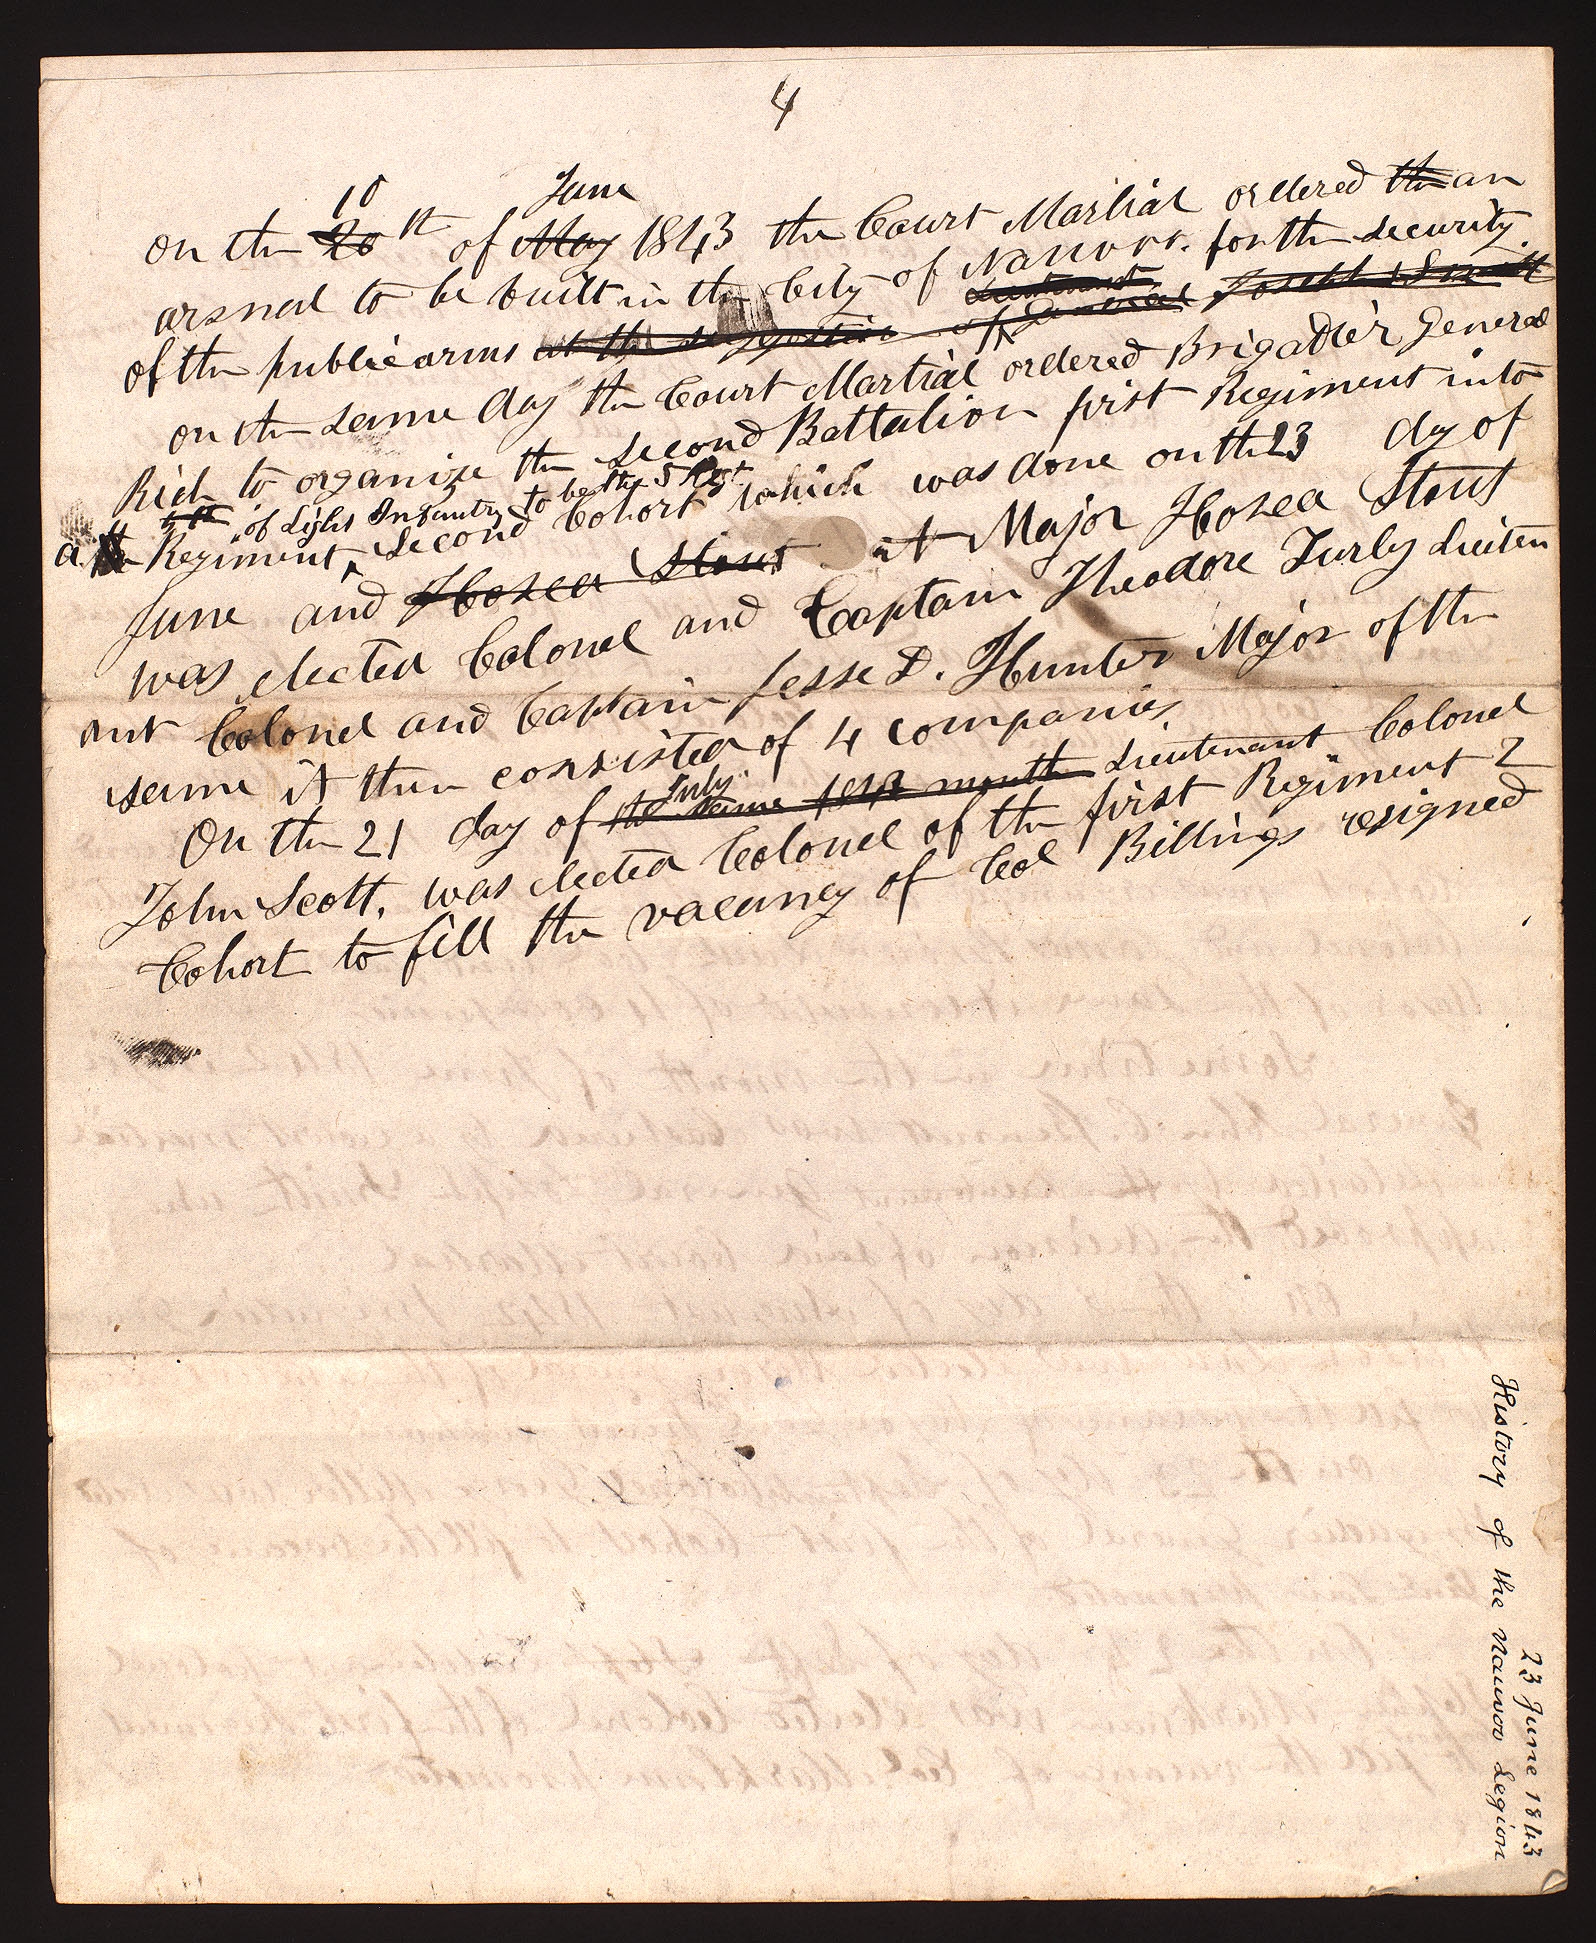 4
10 June
on the 20th of May 1843 the Court Martial ordered the an
arsnal to be built in the City of Nauvoo. for the security
Lieutenant
of the public arms at the sugestion of General Joseph Smith
on the same day the Court Martial ordered Brigadier General
Rich to organize the second Battalion first Regiment into
5th of Light Infantry to be the 5 Regt
a Regiment second Cohort which was done on the 23 day of
June and Hosea Stout at Major Hosea Stout
was elected Colonel and Captain Theodore Turly Lieuten
ant Colonel and Captain Jesse D. Hunter Major of the
same it then consisted of 4 companies
July
On the 21 day of the same month Lieutenant Colonel
John Scott. was elected Colonel of the first Regiment 2
Cohort to fill the vacancy of Col Billings resigned
23 June 1843
History of the Nauvoo Legion